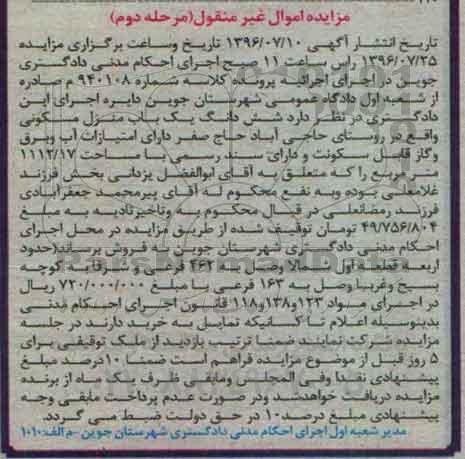 مزایده اموال غیر منقول(مرحله دوم)
تاریخ انتشار آگهی ۱۳۹۶/۰۷/۱۰ تاریخ وساعت برگزاری مزایده
۱۳۹۶/۰۷/۲۵ راس ساعت ۱۱ صبح اجرای احکام مدنی دادگستری
جوین در اجرای اجرائیه پرونده کلاسه شماره ۹۴۰۱۰۸ م صادره
از شعبه اول دادگاه عمومی شهرستان جوین دایره اجرای این
دادگستری در نظر دارد شش دانگ یک باب منزل مسکونی
واقع در روستای حاجی آباد حاج صفر دارای امتیازات آب وبرق
وگاز قابل سکونت و دارای سند رسمی با مساحت ۱۱۱۲/۱۷
متر مربع را که متعلق به آقای ابوالفضل یزدانی بخش فرزند
غلامعلی بوده وبه نفع محکوم له آقای پیرمحمد جعفرآبادی
فرزند رمضانعلی در قبال محکوم به وتاخیرتادیه به مبلغ
۴۹/۷۵۶/۸۰۴ تومان توقیف شده از طریق مزایده در محل اجرای
احکام مدنی دادگستری شهرستان جوین به فروش برساند(حدود
اربعه قطعه اول شمالا وصل به ۲۶۲ فرعی و شرقا به کوچه
بسیح وغربا وصل به ۱۶۳ فرعی با مبلغ ۷۲۰/۰۰۰/۰۰۰ ریال
در اجرای مواد ۱۲۳و۱۳۸و۱۱۸ قانون اجرای احکام مدنی
بدینوسیله اعلام تا کسانیکه تمایل به خرید دارند در جلسه
مزایده شرکت نمایند ضمنا ترتیب بازدید از ملک توقیفی برای
۵ روز قبل از موضوع مزایده فراهم است ضمنا ۱۰درصد مبلغ
پیشنهادی نقدا وفی المجلس ومابقی ظرف یک ماه از برنده
مزایده دریافت خواهدشد ودر صورت عدم پرداخت مابقی وجه
پیشنهادی مبلغ درصد۱۰ در حق دولت ضبط می گردد.
مدیر شعبه اول اجرای احکام مدنی دادگستری شهرستان جوین -م الف:۱۰۱۰